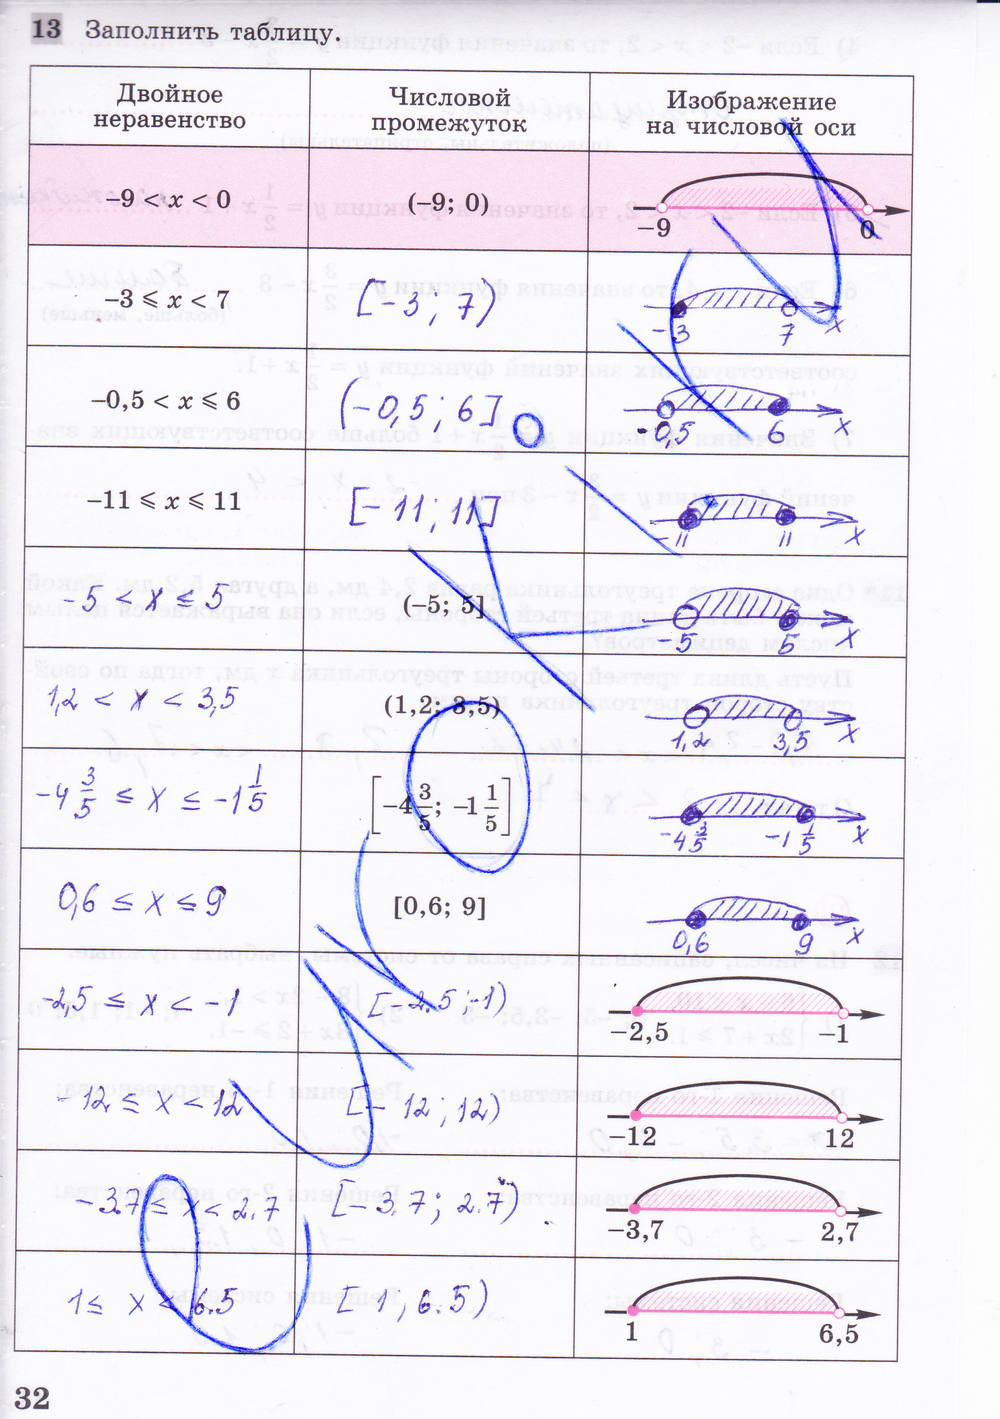 13 Заполнить таблицу.
Двойное неравенство
Числовой промежуток
Изображение на числовой оси
−9 < x < 0 (−9; 0) −9 0
−3 ⩽ x < 7 [−3; 7) −3 7 x
−0,5 < x ⩽ 6 (−0,5; 6] −0,5 6 x
−11 ⩽ x ⩽ 11 [−11; 11] −11 11 x
−5 < x ≤ 5 (−5; 5] −5 5 x
1,2 < x < 3,5 (1,2; 3,5) 1,2 3,5 x
−4 3/5 ≤ x ≤ −1 1/5 [−4 3/5; −1 1/5] −4 3/5 −1 1/5 x
0,6 ≤ x ≤ 9 [0,6; 9] 0,6 9 x
−2,5 ≤ x < −1 [−2.5; −1) −2,5 −1
−12 ≤ x < 12 [−12; 12) −12 12
−3.7 ≤ x < 2.7 [−3.7; 2.7) −3,7 2,7
1 ≤ x < 6.5 [1; 6.5) 1 6,5
32